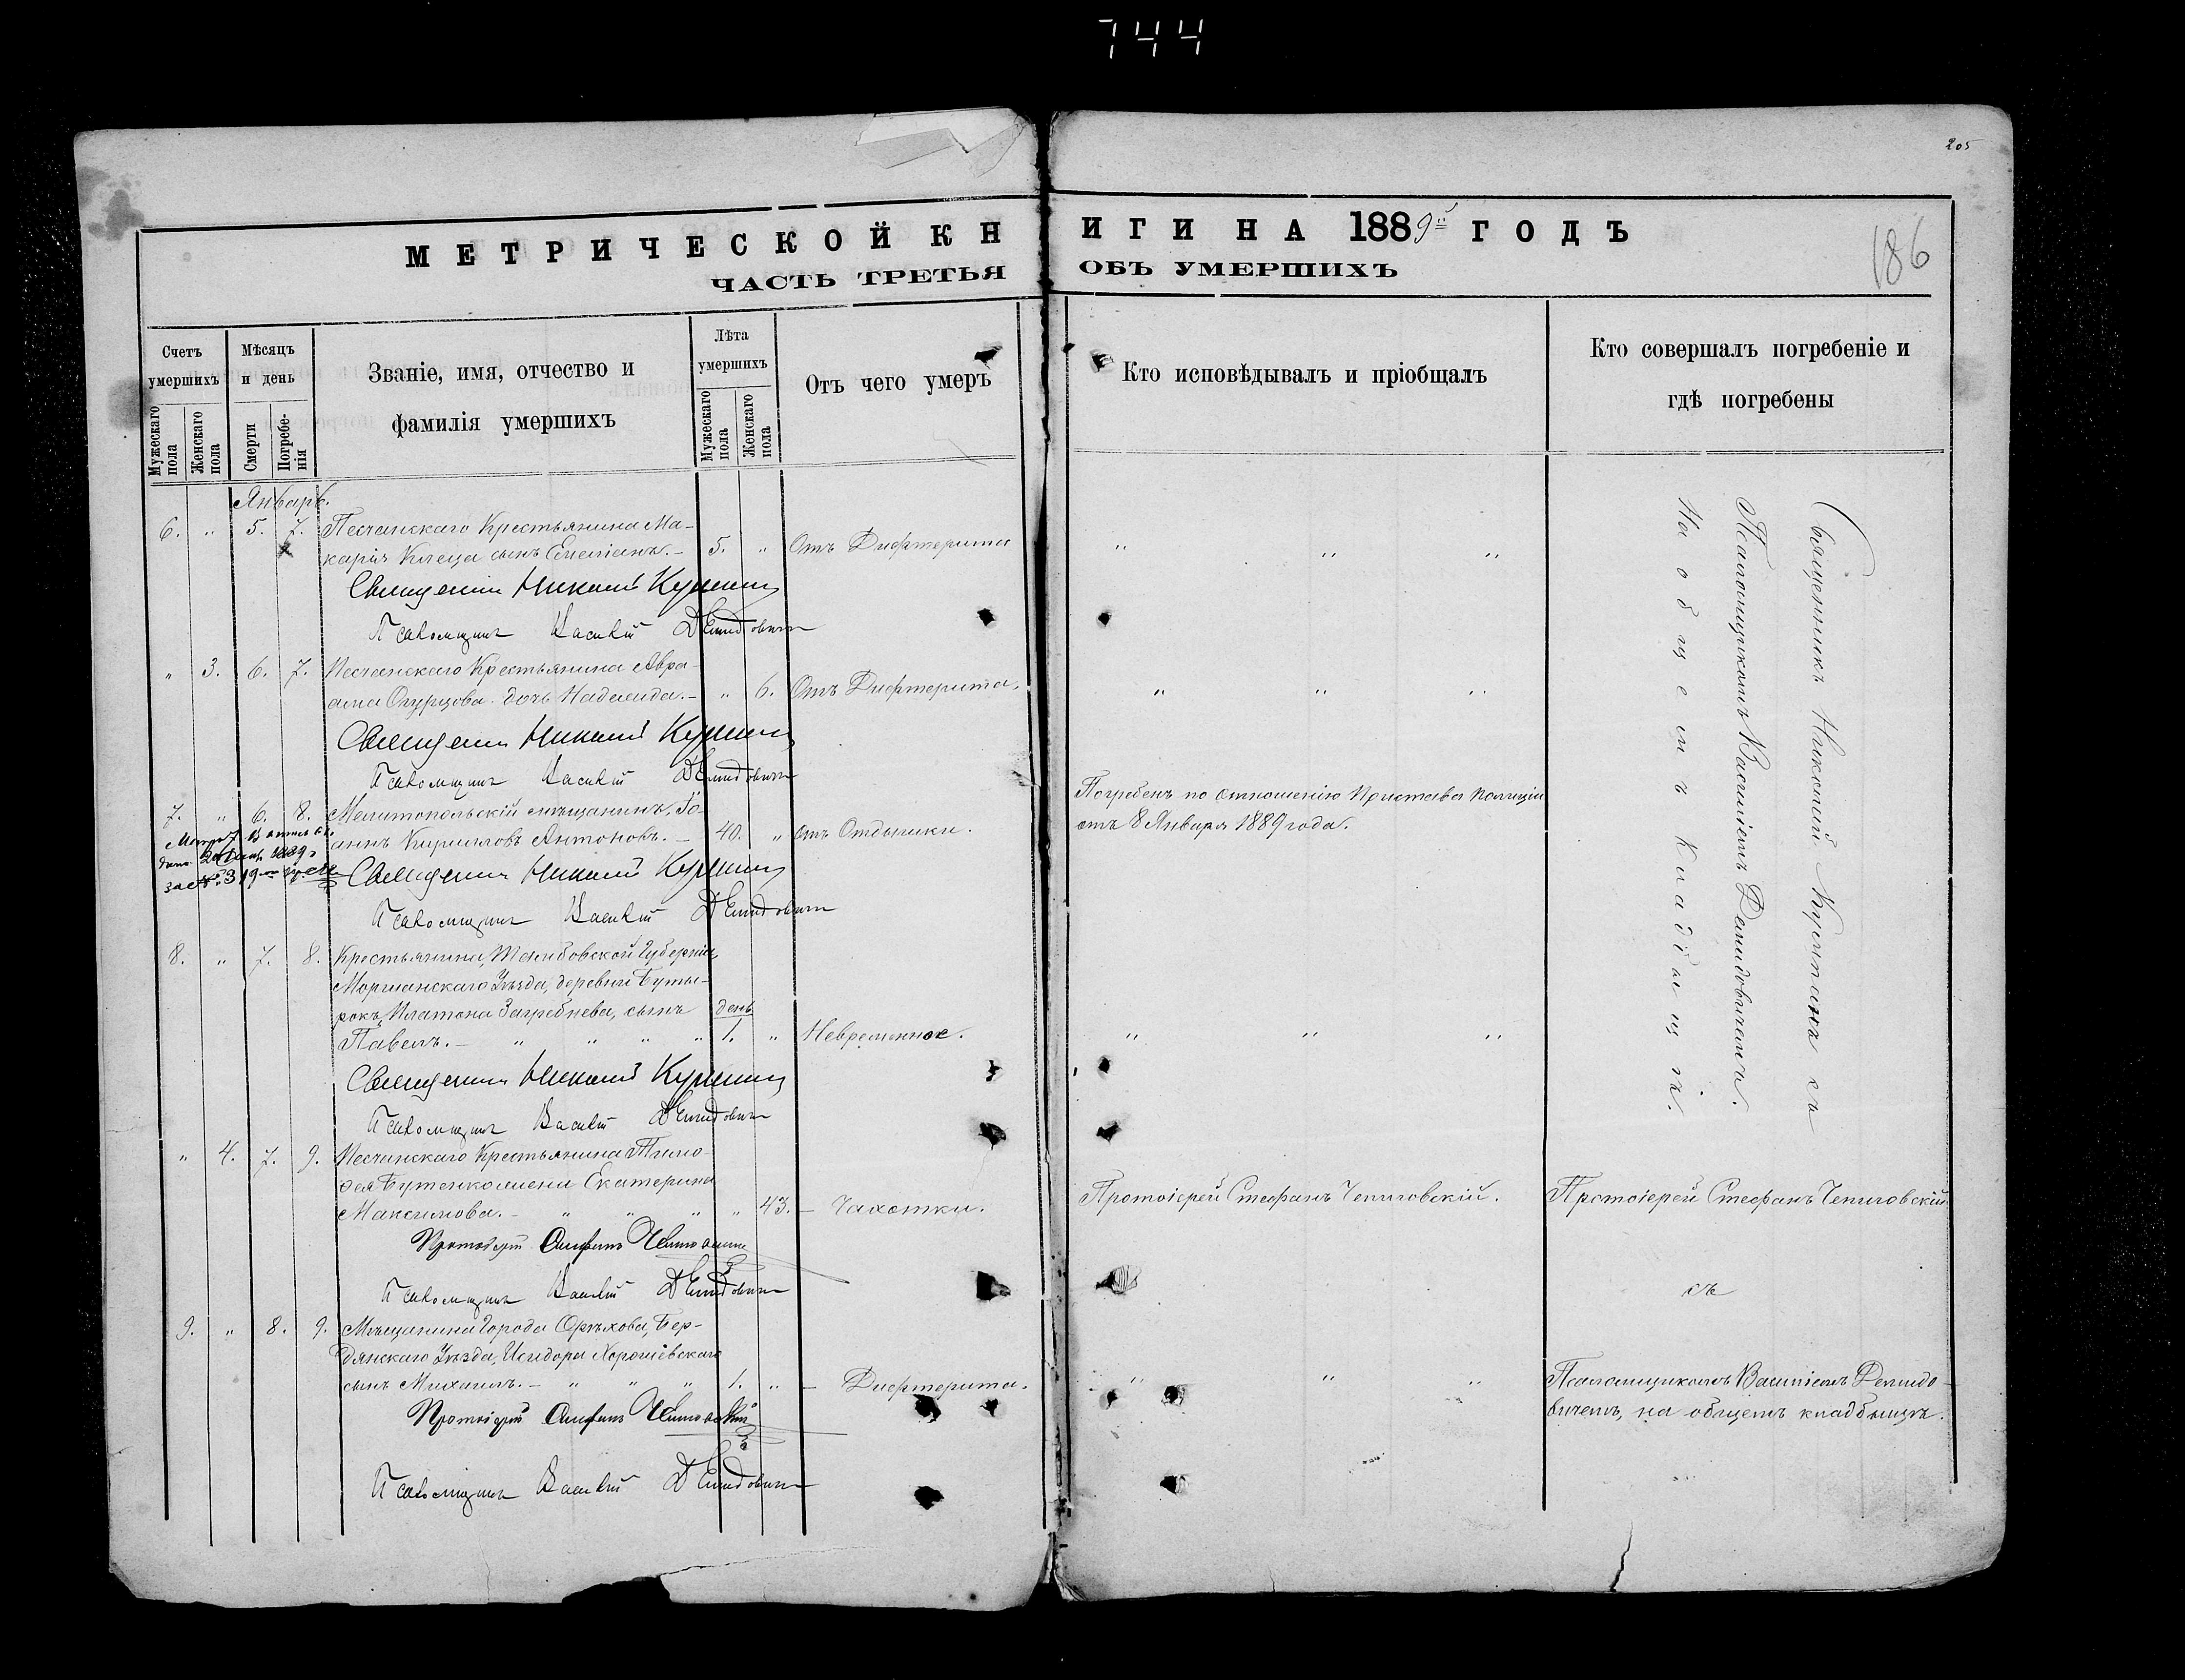 744
205
186
МЕТРИЧЕСКОЙ КНИГИ НА 1889й ГОДЪ
ЧАСТЬ ТРЕТЬЯ ОБЪ УМЕРШИХЪ
Счетъ умершихъ
Мужескаго пола
Женскаго пола
Мѣсяцъ и день
Смерти
Погребенія
Званіе, имя, отчество и
фамилія умершихъ
Лѣта умершихъ
Мужескаго пола
Женскаго пола
Отъ чего умеръ
Кто исповѣдывалъ и пріобщалъ
Кто совершалъ погребеніе и
гдѣ погребены
Январь.
6. " 5. 7. Песчанскаго Крестьянина Ма-
карія Клеца сынъ Емеліанъ.- 5. " Отъ Дифтерита " " "
Священникъ Николай
Псаломщикъ Василій Демидовичъ
" 3. 6. 7. Песчанскаго Крестьянина Авра-
ама Огурцова дочь Надежда.- " 6. Отъ Дифтерита. " " "
Священникъ Николай
Псаломщикъ Василій Демидовичъ
7. " 6. 8. Мелитопольскій мѣщанинъ, Іо-
аннъ Кирилловъ Антоновъ.- 40. " Отъ Отдышки.
Погребенъ по отношенію Пристава Полиціи
отъ 8 Января 1889 года.
1889
за № 319
Священникъ Николай
Псаломщикъ Василій Демидовичъ
8. " 7. 8. Крестьянина, Тамбовской Губерніи,
Моршанскаго Уѣзда, деревни Буты-
рокъ, Платона Загребнева, сынъ день
Павелъ.- " " " " 1. " Невременное. " " "
Священникъ Николай
Псаломщикъ Василій Демидовичъ
Священникъ Николай съ
Псаломщикомъ Василіемъ Демидовичемъ.
На общемъ кладбищѣ.
" 4. 7. 9. Песчанскаго Крестьянина Тимо-
фея Бутенко жена Екатерина
Максимова.- " " " " 43. - Чахотки.
Протоіерей Стефанъ
Протоіерей Стефанъ
Протоіерей Стефанъ
Псаломщикъ Василій Демидовичъ
съ
9. " 8. 9. Мѣщанина Города Орѣхова, Бер-
дянскаго Уѣзда, Исидора Хорошевскаго
сынъ Михаилъ.- " " " 1. " - Дифтерита. " " "
Псаломщикомъ Василіемъ Демидо-
вичемъ, на общемъ кладбищѣ.
Протоіерей Стефанъ
Псаломщикъ Василій Демидовичъ